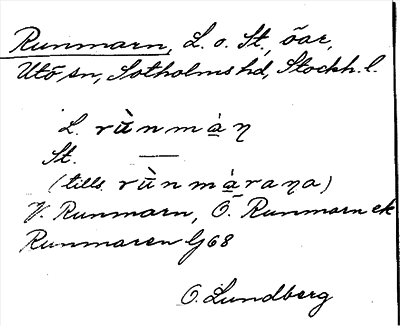 Runmarn, L. o. St., öar,
Utö sn, Sotholms hd, Stockh. l.
L. rùnmȧ̱ŋ
St. ——
(tills. rùnmȧ̱raŋa)
V. Runmarn, Ö. Runmarn ek
Runmaren Gj 68
O. Lundberg